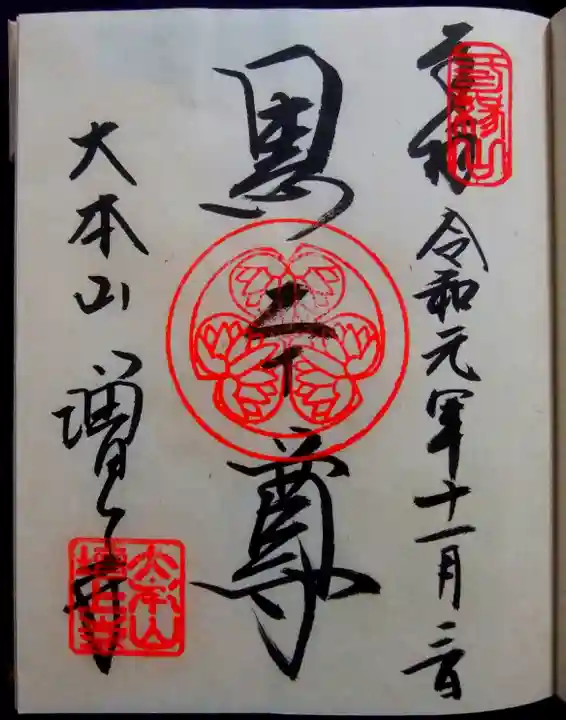 奉拝 令和元年十一月
三縁山
黒本尊
大本山 増上寺
大本山
増上寺